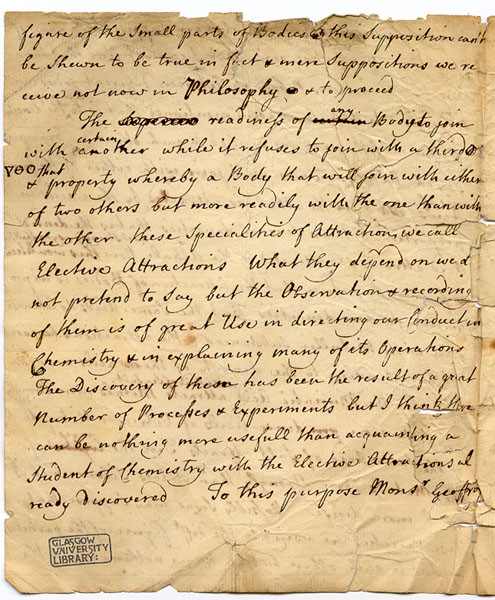 figure of the Small parts of Bodies & this Supposition can't
be Shewn to be true in fact & mere Suppositions we re
ceive not now in Philosophy & to proceed
The readiness of any Body to join
with certain another while it refuses to join with a third Or
that
& property whereby a Body that will join with either
of two others but more readily with the one than with
the other these Specialities of Attraction, we call
Elective Attractions What they depend on we d
not pretend to Say but the Observation & recording
of them is of great Use in directing our Conduct in
Chemistry & in explaining many of its Operations
The Discovery of these has been the result of a great
Number of Processes & Experiments but I think there
can be nothing more usefull than acquainting a
Student of Chemistry with the Elective Attractions al
ready Discovered To this purpose Monsr Geoffroy
GLASGOW
UNIVERSITY
LIBRARY: